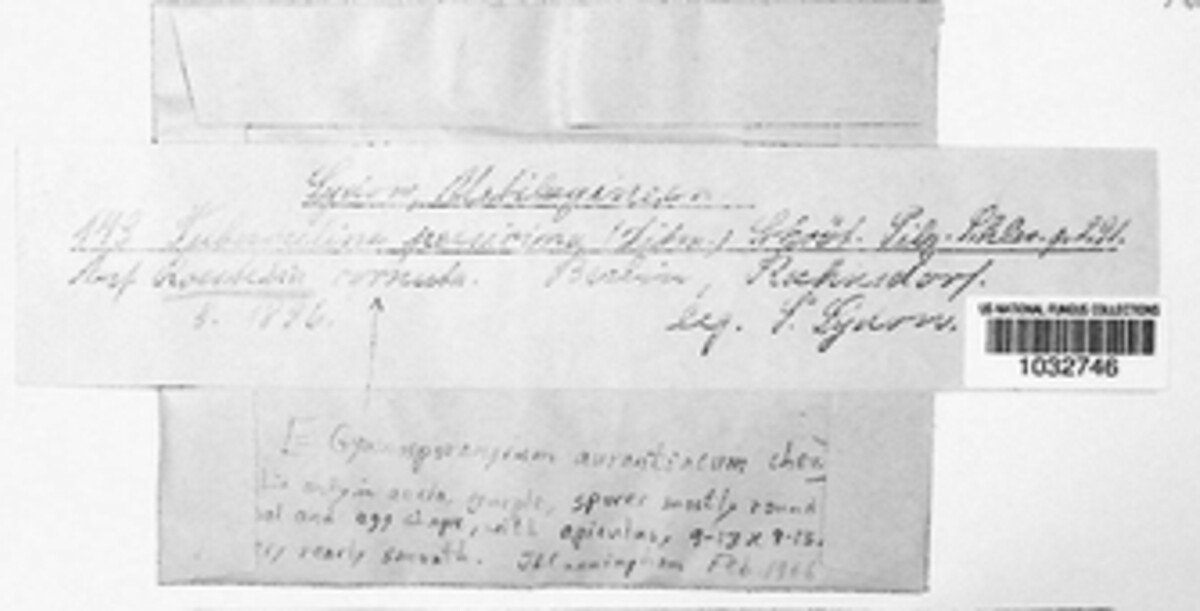 Sydow, Ustilagineen
143 Tuberculina persicina (Ditm.) Schröt. Pilz. Schles.
Auf Roestelia cornuta. Berlin, Rahnsdorf.
8. 1896. leg. P. Sydow.
US NATIONAL FUNGUS COLLECTIONS
1032746
Gymnosporangium aurantiacum Chev
only in aecia, purple, spores mostly round
and egg shape, with apiculus, 9-13 x 9-13.
nearly smooth. Cunningham Feb 1966